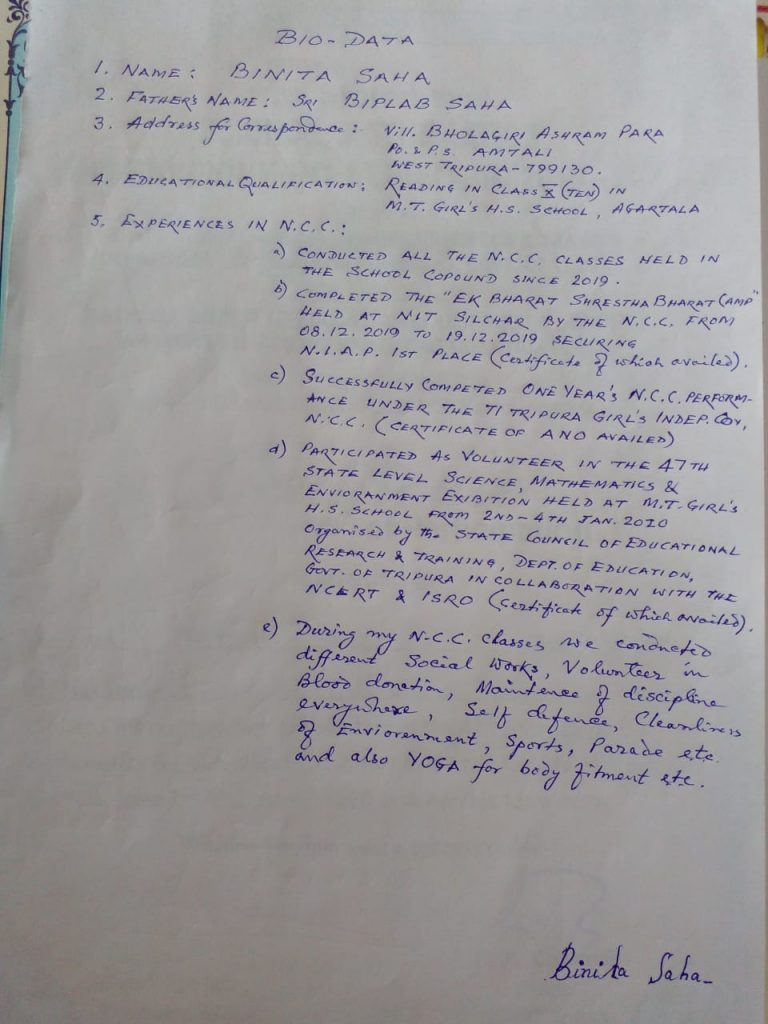 BIO-DATA
1. NAME: BINITA SAHA
2. FATHER'S NAME: SRI BIPLAB SAHA
3. Address for Correspondence: Vill. BHOLAGIRI ASHRAM PARA
PO. & P.S. AMTALI
WEST TRIPURA-799130.
4. EDUCATIONAL QUALIFICATION: READING IN CLASS X (TEN) IN
M.T. GIRL'S H.S. SCHOOL, AGARTALA
5. EXPERIENCES IN N.C.C.:
a) CONDUCTED ALL THE N.C.C. CLASSES HELD IN
THE SCHOOL COPOUND SINCE 2019.
b) COMPLETED THE "EK BHARAT SHRESTHA BHARAT CAMP"
HELD AT NIT SILCHAR BY THE N.C.C. FROM
08.12.2019 TO 19.12.2019 SECURING
N.I.A.P. 1ST PLACE (Certificate of which availed).
c) SUCCESSFULLY COMPETED ONE YEAR'S N.C.C. PERFORM-
ANCE UNDER THE TI TRIPURA GIRL'S INDEP. COY,
N.C.C. (CERTIFICATE OF ANO AVAILED)
d) PARTICIPATED AS VOLUNTEER IN THE 47TH
STATE LEVEL SCIENCE, MATHEMATICS &
ENVIORANMENT EXIBITION HELD AT M.T. GIRL'S
H.S. SCHOOL FROM 2ND-4TH JAN. 2020
Organised by the STATE COUNCIL OF EDUCATIONAL
RESEARCH & TRAINING, DEPT. OF EDUCATION,
GOVT. OF TRIPURA IN COLLABORATION WITH THE
NCERT & ISRO (Certificate of which availed).
e) During my N.C.C. classes we conducted
different Social Works, Volunteer in
Blood donation, Maintence of discipline
everywhere, Self defence, Cleanliness
of Enviorenment, Sports, Parade etc.
and also YOGA for body fitment etc.
Binita Saha